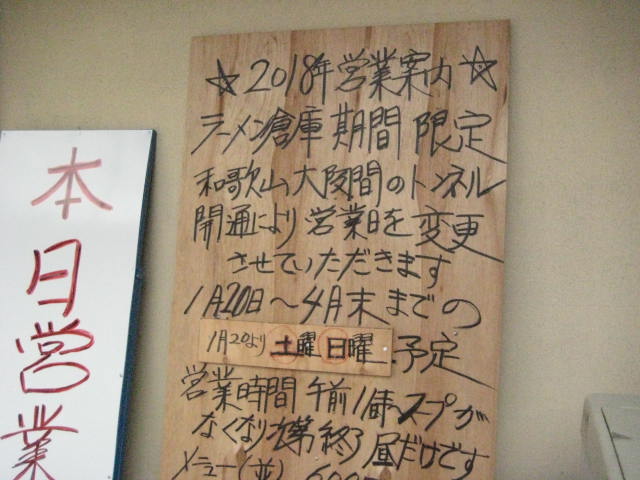 ☆2018年営業案内☆
ラーメン倉庫期間限定
和歌山大阪間のトンネル
開通により営業日を変更
させていただきます
1月20日〜4月末までの
1月20より土曜日曜予定
営業時間 午前11時〜スープが
なくなり次第終了昼だけです
メニュー(並)
本日営業